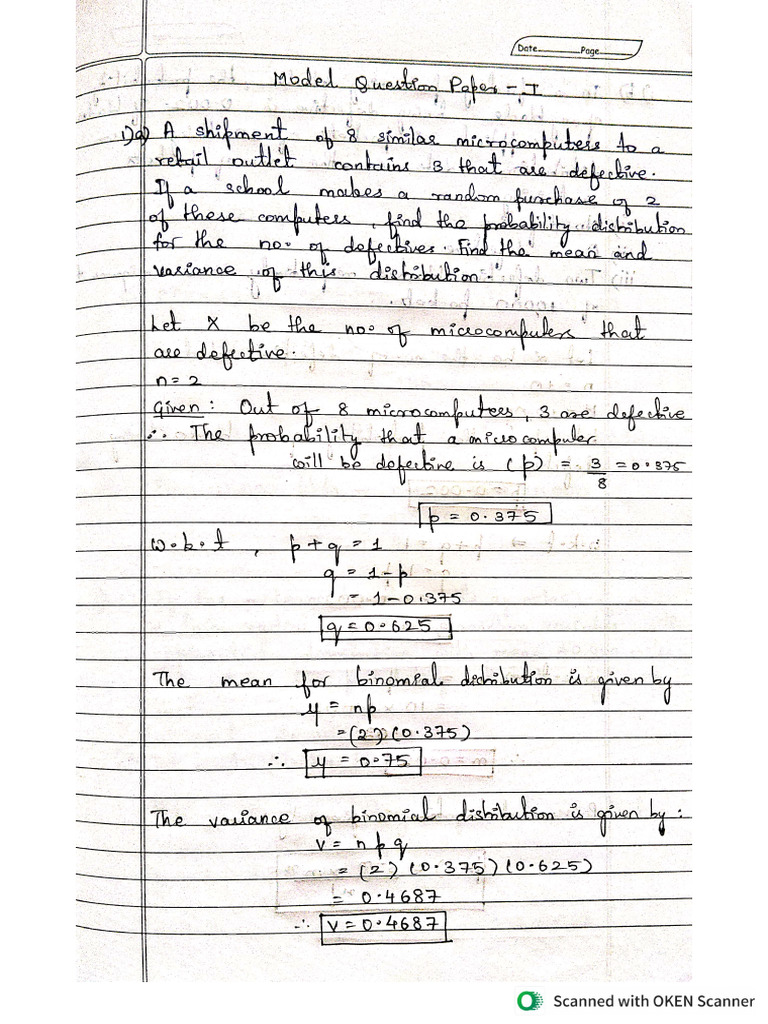 Date Page
Model Question Paper - I
1)a) A shipment of 8 similar microcomputers to a
retail outlet contains 3 that are defective.
If a school makes a random purchase of 2
of these computers, find the probability distribution
for the no. of defectives. Find the mean and
variance of this distribution.
Let X be the no. of microcomputers that
are defective.
n = 2
Given: Out of 8 microcomputers, 3 are defective
∴ The probability that a microcomputer
will be defective is (p) = 3/8 = 0.375
p = 0.375
w.k.t, p + q = 1
q = 1 - p
= 1 - 0.375
q = 0.625
The mean for binomial distribution is given by
μ = np
= (2) (0.375)
∴ μ = 0.75
The variance of binomial distribution is given by:
v = n p q
= (2) (0.375) (0.625)
= 0.4687
∴ v = 0.4687
Scanned with OKEN Scanner